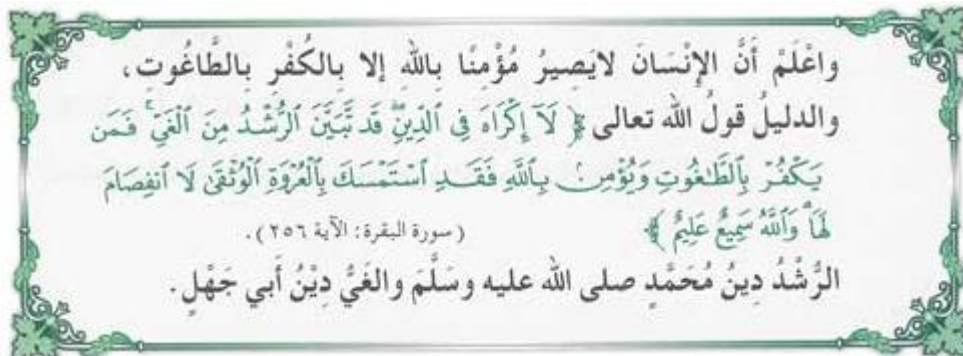 واعْلَمْ أَنَّ الإِنْسَانَ لايَصِيرُ مُؤْمِنًا بِاللهِ إلا بِالكُفْرِ بِالطَّاغُوتِ،
والدليلُ قولُ الله تعالى ﴿ لَآ إِكْرَاهَ فِي ٱلدِّينِۖ قَد تَّبَيَّنَ ٱلرُّشْدُ مِنَ ٱلْغَيِّۚ فَمَن
يَكْفُرْ بِٱلطَّٰغُوتِ وَيُؤْمِنۢ بِٱللَّهِ فَقَدِ ٱسْتَمْسَكَ بِٱلْعُرْوَةِ ٱلْوُثْقَىٰ لَا ٱنفِصَامَ
لَهَاۗ وَٱللَّهُ سَمِيعٌ عَلِيمٌ ﴾ (سورة البقرة: الآية ٢٥٦).
الرُّشْدُ دِينُ مُحَمَّدٍ صلى الله عليه وسَلَّمَ والغَيُّ دِيْنُ أَبي جَهْلٍ.